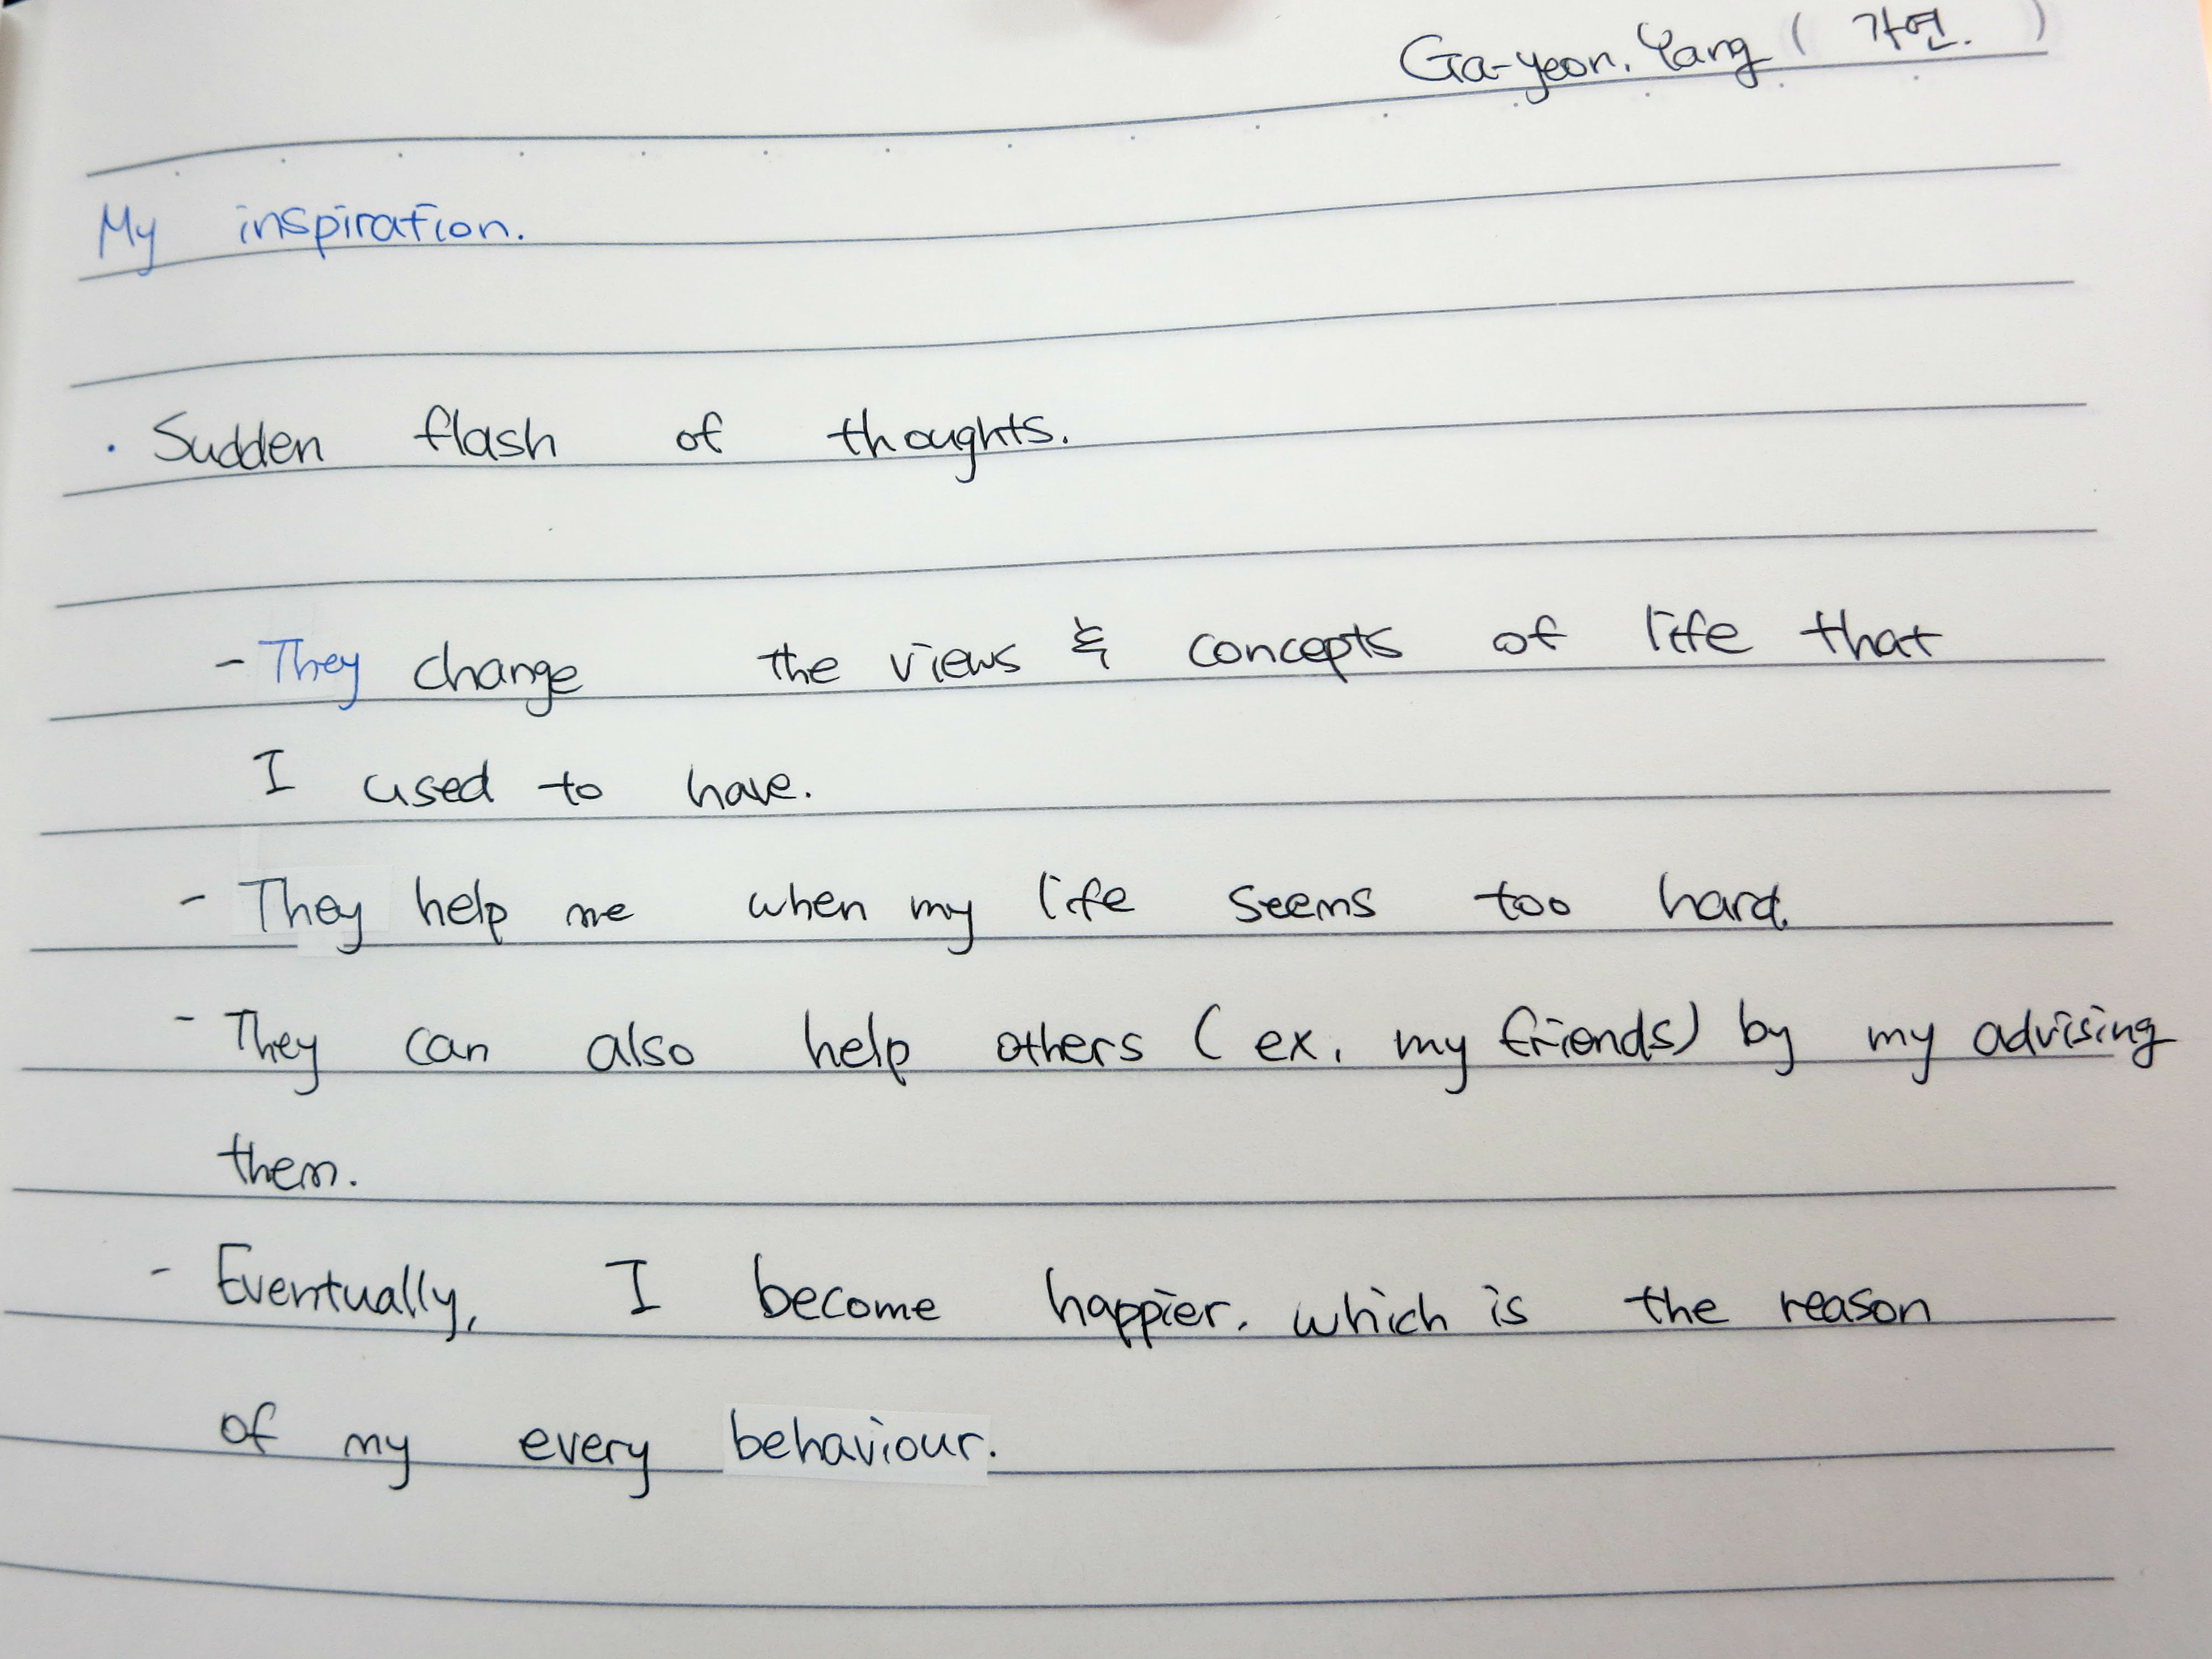 Ga-yeon. Yang ( 가연. )
My inspiration.
· Sudden flash of thoughts.
- They change the views & concepts of life that
I used to have.
- They help me when my life seems too hard.
- They can also help others (ex. my friends) by my advising
them.
- Eventually, I become happier. which is the reason
of my every behaviour.